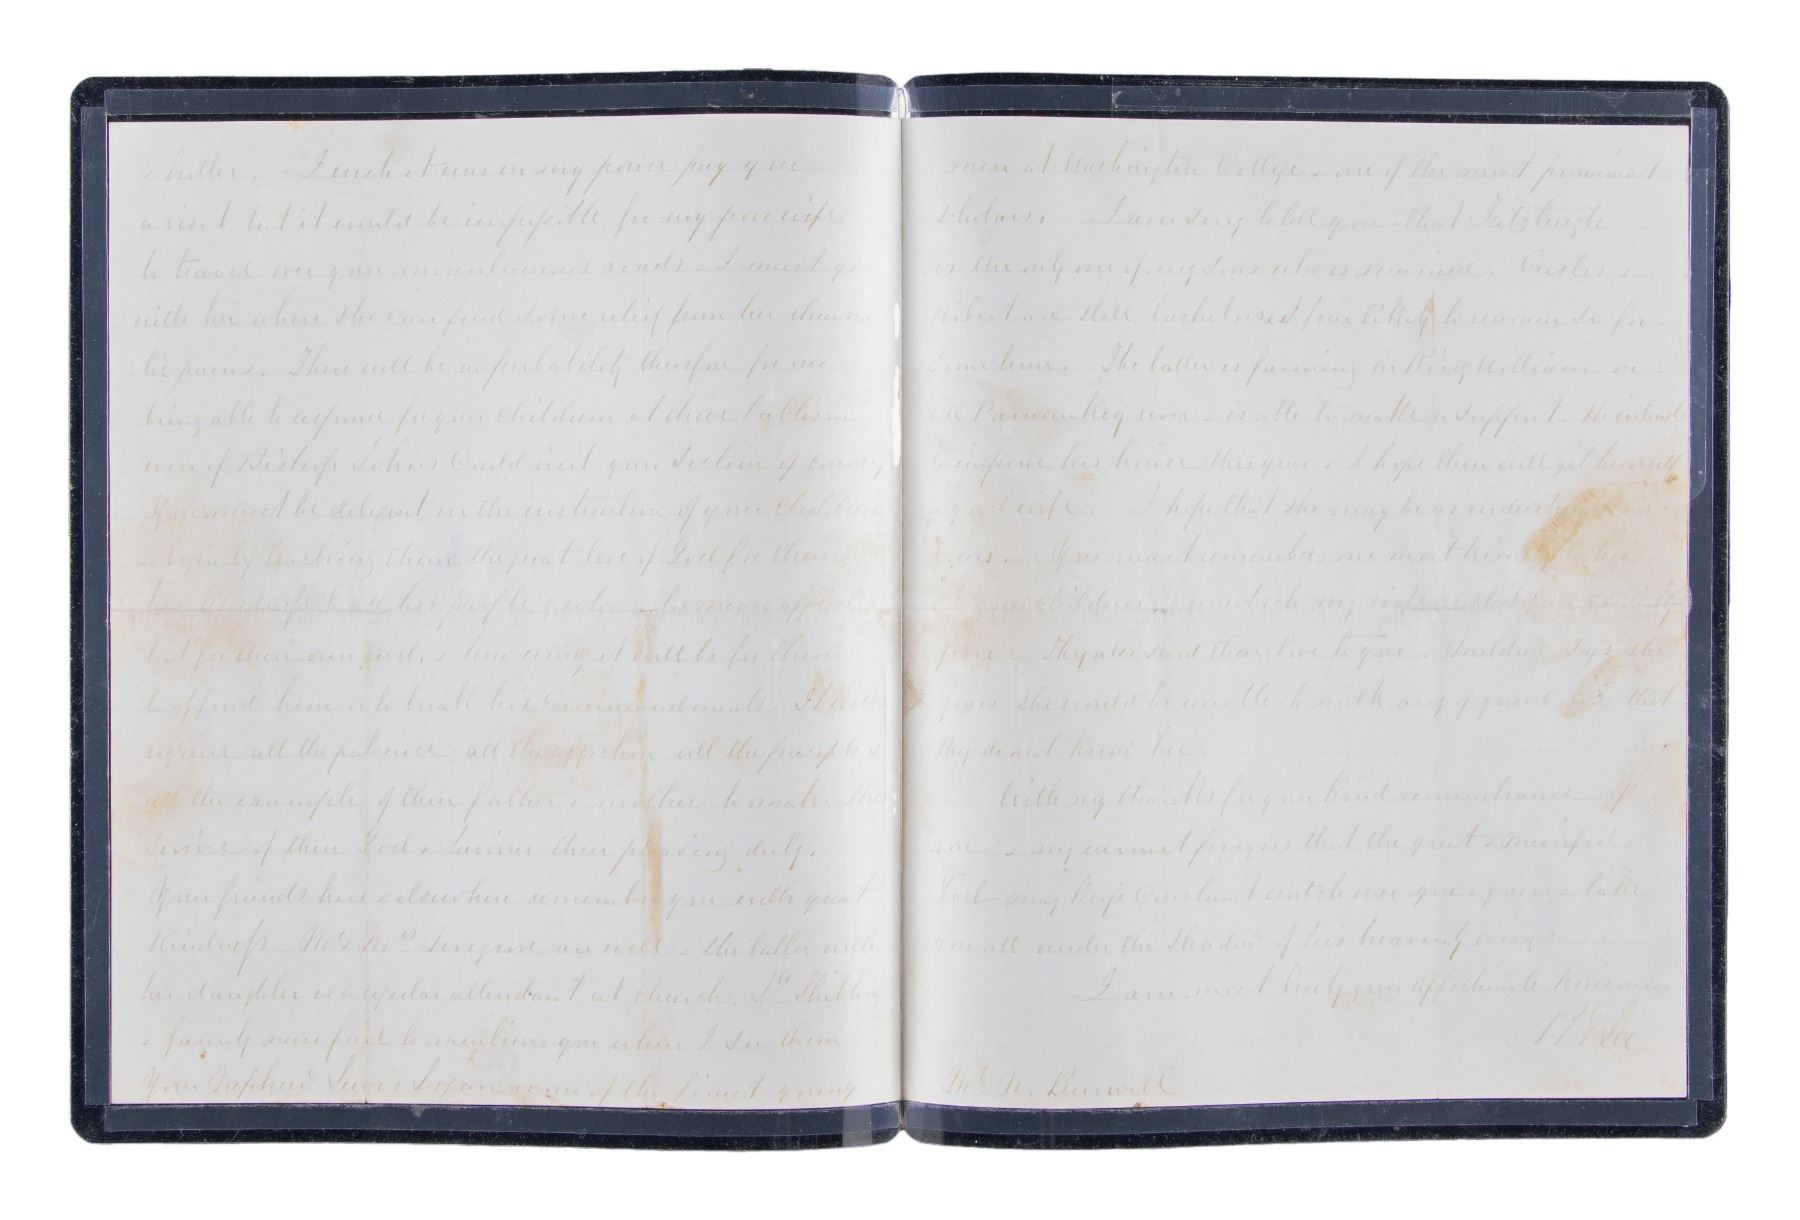 & butter. I wish it was in my power pay you
a visit, but it would be impossible for my poor wife
to travel over your mountainous roads & I must go
with her where she can find some relief from her rheuma
tic pains. There will be no probability therefore for me
being able to respond for your children at their baptism
even if Bishop Johns could visit your section of country
You must be diligent in the instruction of your children
& begin by teaching them the great love of God for them
his kindness to all his people
but for their own good, & how wrong it will be for them
to offend him or to break his Commandments. It will
require all the patience, all the affection all the precepts &
all the example of their father & mother to make the
service of their God & Saviour their pleasing duty.
Your friends here & elsewhere remember you with great
kindness Mr & Mrs are well & the latter with
her daughter is a regular attendant at church. Dr
& family never fail to mention you when I see them
Your nephew Lewis Logan is one of the finest young
men at Washington College & one of the most prominent
scholars. I am sorry to tell you that Fitzhugh
is the only one of my sons who is married. Custis &
Robert are still bachelors & I fear likely to remain so for
some time. The latter is farming in King William on
the Pamunkey river & is able to make a support. He intends
to improve his house this year & I hope then will get himself
a good wife. I hope that she may be as
yours. You must remember me most kindly to her
& your children in which my wife
join They also send their love to you. Mildred says she
fears she would be unable to milk any of your cows, that
they do not know her.
With my thanks for your kind remembrance of
me, & my earnest prayers that the great & merciful
God may keep constant watch over you & yours & take
you all under the shadow of his heavenly wings
I am most truly your affectionate kinsman
R E Lee
Mr N. Burwell